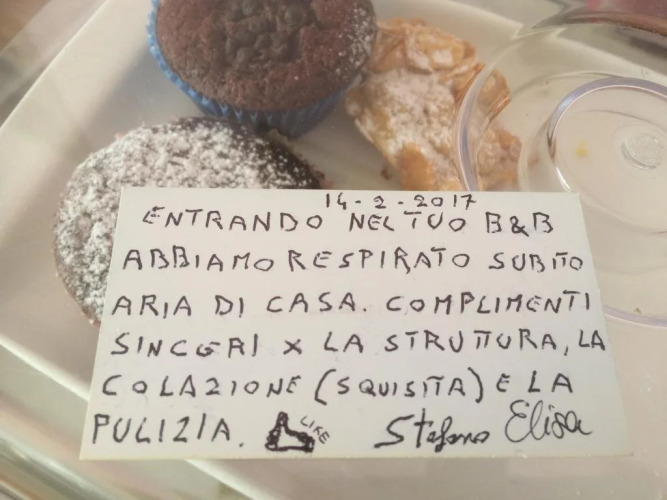 14-2-2017
ENTRANDO NEL TUO B&B
ABBIAMO RESPIRATO SUBITO
ARIA DI CASA. COMPLIMENTI
SINCERI X LA STRUTTURA, LA
COLAZIONE (SQUISITA) E LA
PULIZIA. LIKE Stefano Elisa